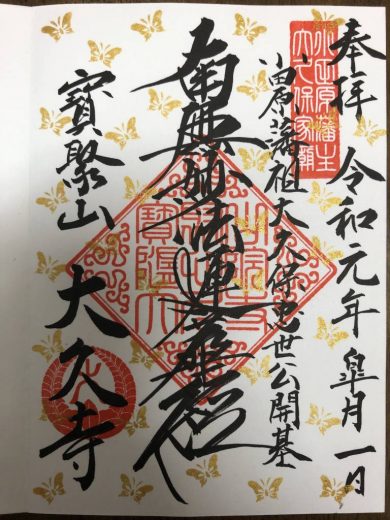 奉拝 令和元年 皐月一日
小田原藩主
大久保家廟
小田原藩祖大久保忠世公開基
南無妙法蓮華経
寶聚山 大久寺